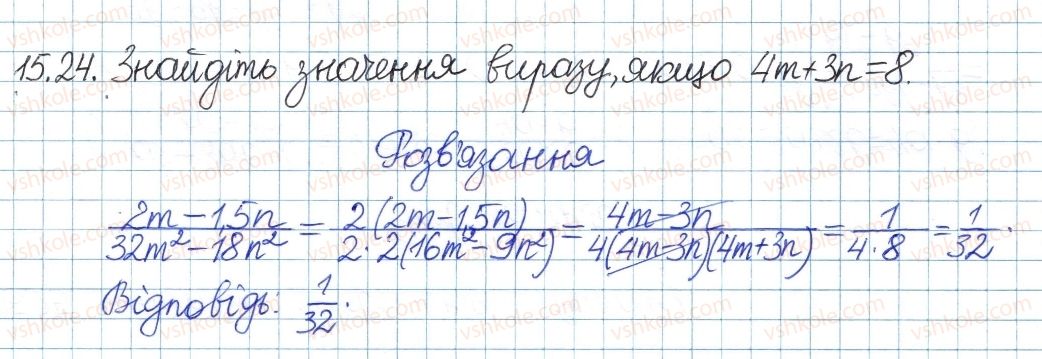 15.24. Знайдіть значення виразу, якщо 4m+3n=8.
Розв'язання
2m-1,5n / 32m²-18n² = 2(2m-1,5n) / 2·2(16m²-9n²) = 4m-3n / 4(4m-3n)(4m+3n) = 1 / 4·8 = 1/32.
Відповідь: 1/32.